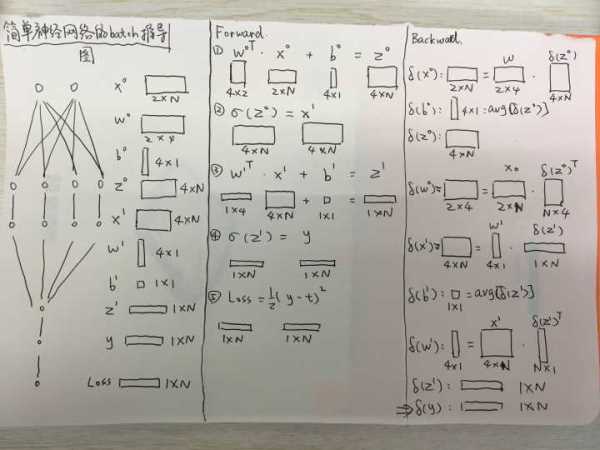 简单神经网络的batch推导
图
x⁰ 2×N
w⁰ 2×4
b⁰ 4×1
z⁰ 4×N
x¹ 4×N
w¹ 4×1
b¹ 1×1
z¹ 1×N
y 1×N
Loss 1×N
Forward
① w⁰ᵀ · x⁰ + b⁰ = z⁰
4×2 2×N 4×1 4×N
② σ(z⁰) = x¹
4×N 4×N
③ w¹ᵀ · x¹ + b¹ = z¹
1×4 4×N + 1×1 = 1×N
④ σ(z¹) = y
1×N 1×N
⑤ Loss = ½(y-t)²
1×N 1×N
Backward
w δ(z⁰)
δ(x⁰): = ·
2×N 2×4 4×N
δ(b⁰): 4×1 = avg[δ(z⁰)]
δ(z⁰):
4×N
x₀ δ(z⁰)ᵀ
δ(w⁰) = = ·
2×4 2×N N×4
w¹ δ(z¹)
δ(x¹) = = ·
4×N 4×1 1×N
δ(b¹): = avg[δ(z¹)]
1×1
x¹ δ(z¹)ᵀ
δ(w¹): = ·
4×1 4×N N×1
δ(z¹): 1×N
⇒ δ(y): 1×N